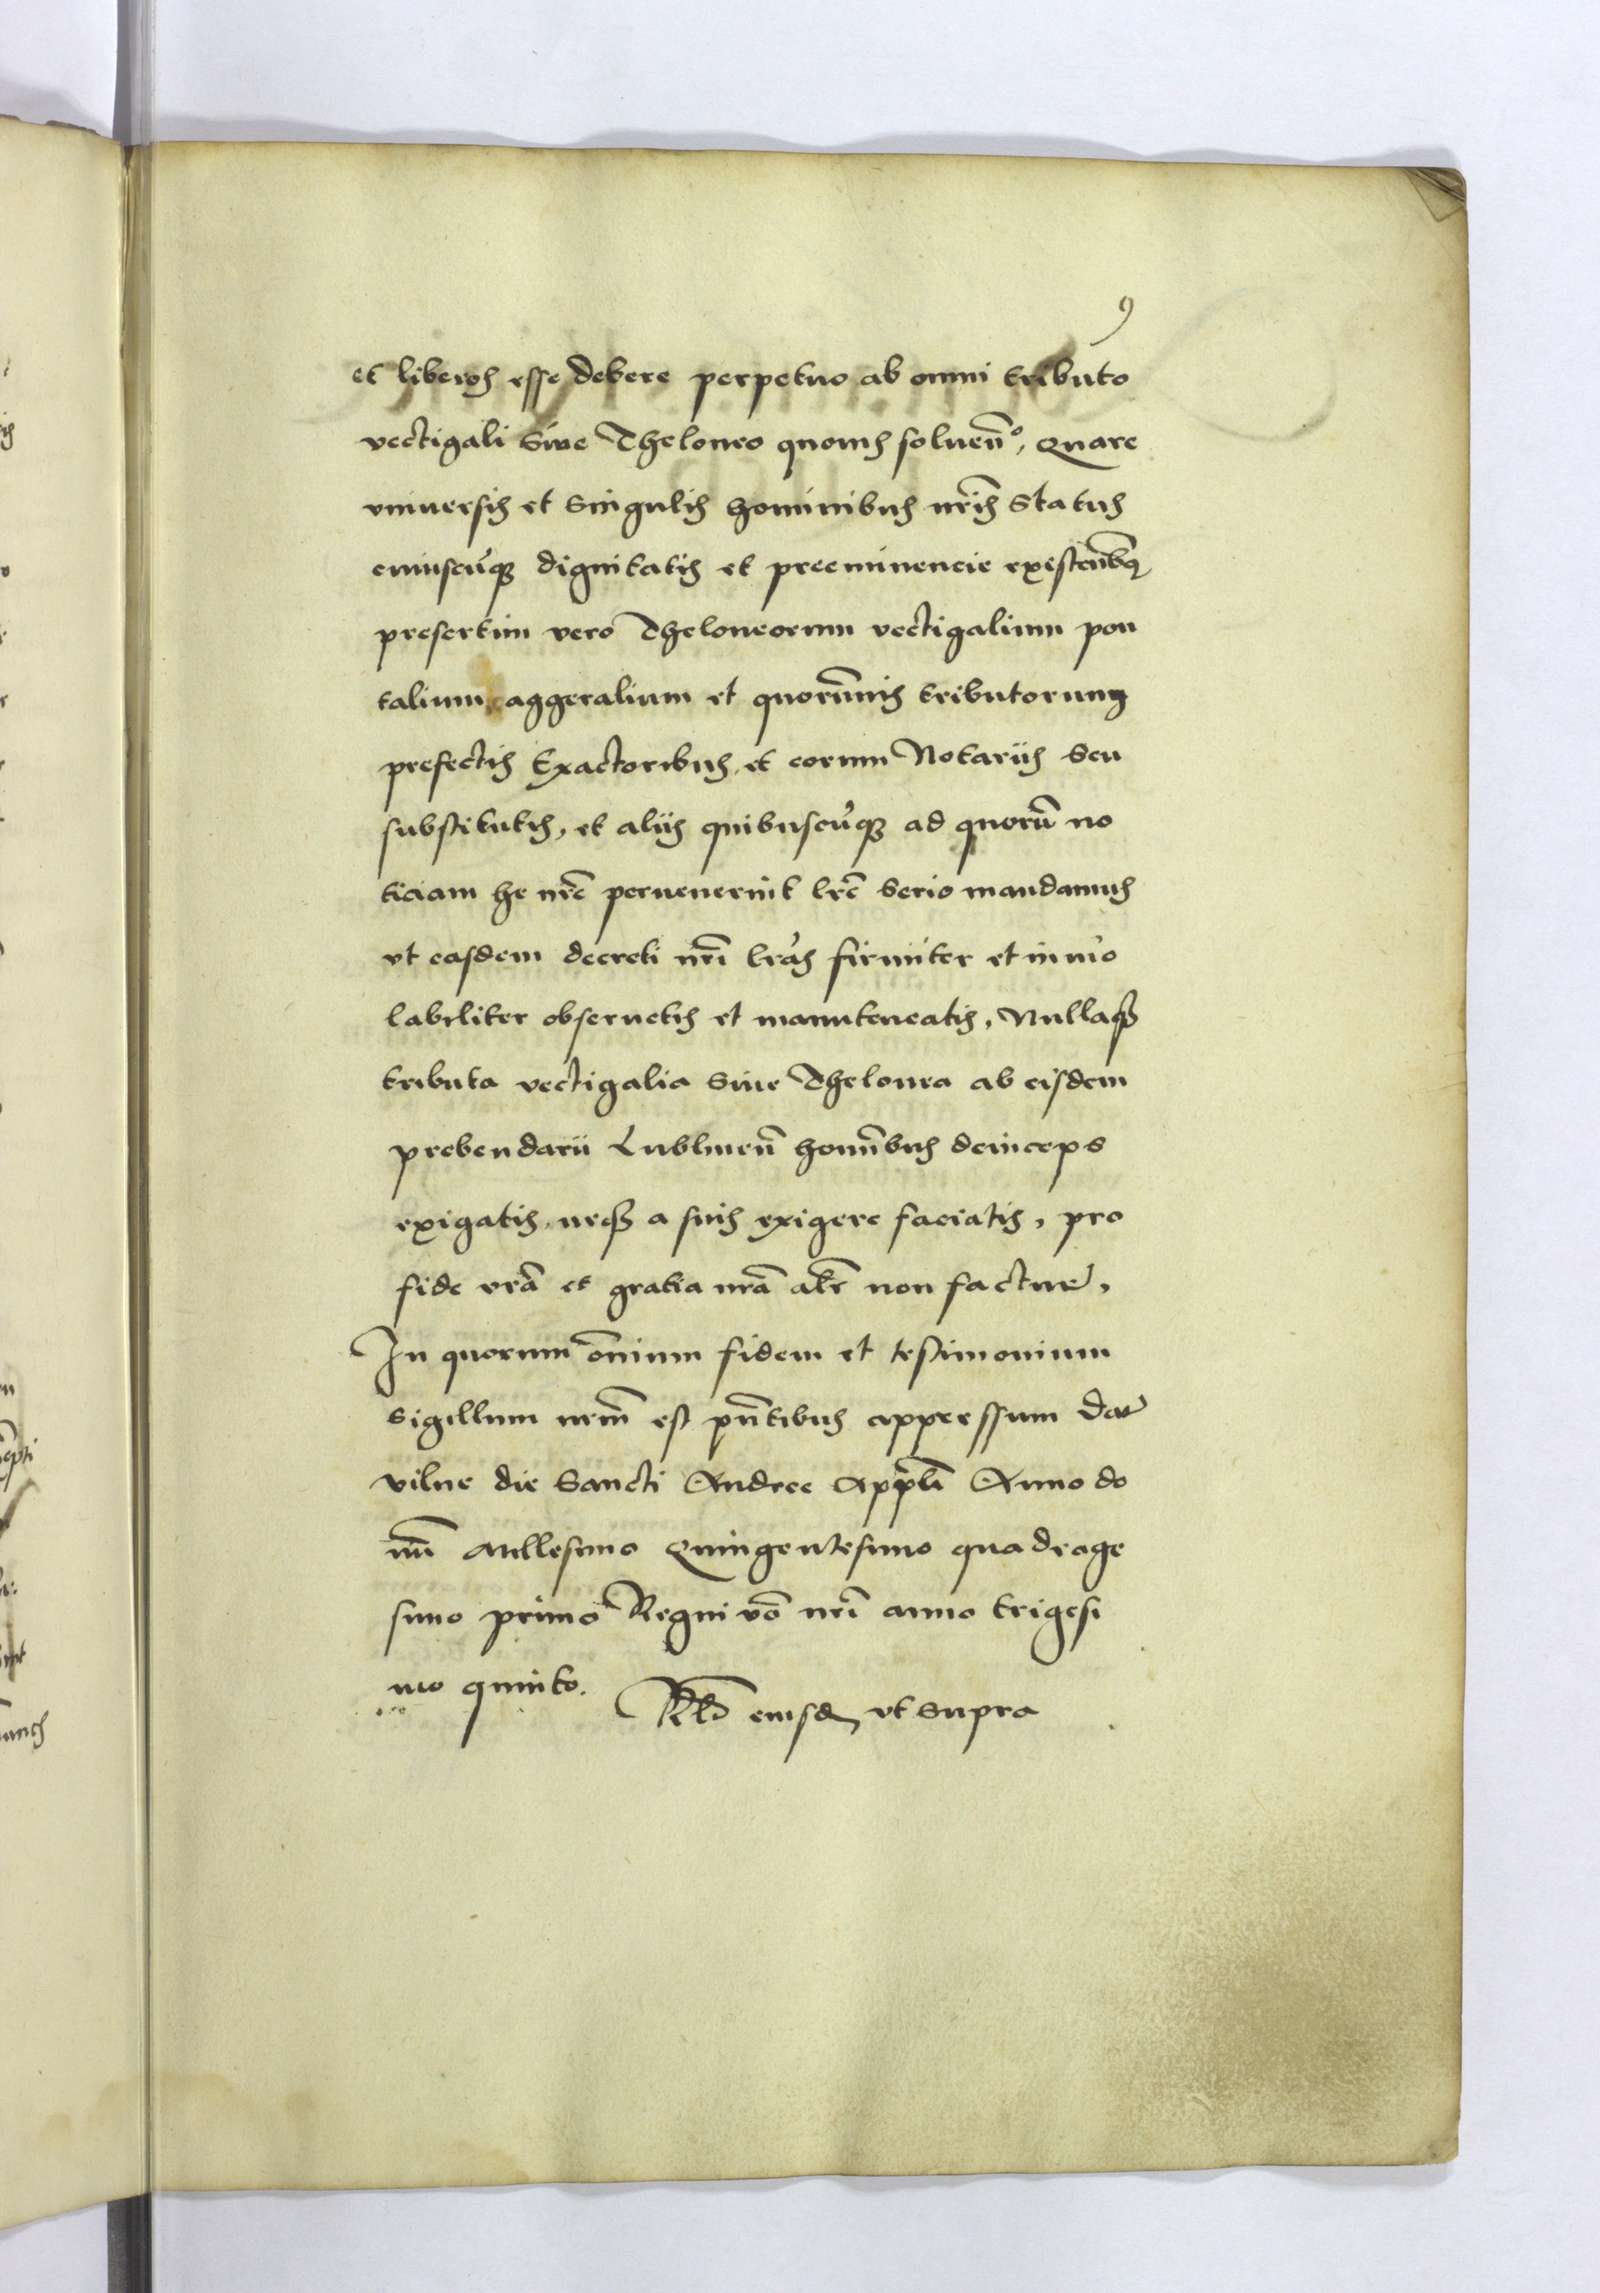 9
et liberos esse debere perpetuo ab omni tributo
vectigali Siue Theloneo quouis soluen̄º, Quare
vniuersis et Singulis hominibus nr̄is Status
cuiuscu̓qꝫ dignitatis et preeminencie existen̄bꝫ
presertim vero Theloneorum vectigalium pon
talium aggeralium et quorum̄uis tributorum
prefectis Exactoribus et eorum Notariis Seu
substitutis, et aliis quibuscu̓qꝫ ad quorū no
ticiam he nr̄e peruenerint lr̄e Serio mandamus
vt easdem decreti nr̄i lr̄as firmiter et inuio
labiliter obseruetis et manuteneatis, Nullaqꝫ
tributa vectigalia Siue Thelonea ab eisdem
prebendarii Lublinen̄ homīnbus deinceps
exigatis, neqꝫ a suis exigere faciatis, pro
fide vr̄a et gratia nr̄a alr̄ non factur̄,
In quorum om̄nium fidem et testimonium
Sigillum nrm̄ est pn̄tibus appressum Dat̄
vilne die Sancti Andree Appl̄i Anno do
mī Millesimo Quingentesimo quadrage
simo primo Regni vō nr̄i anno trigesi
mo quinto.
Rl̄o eiusd vt Supra